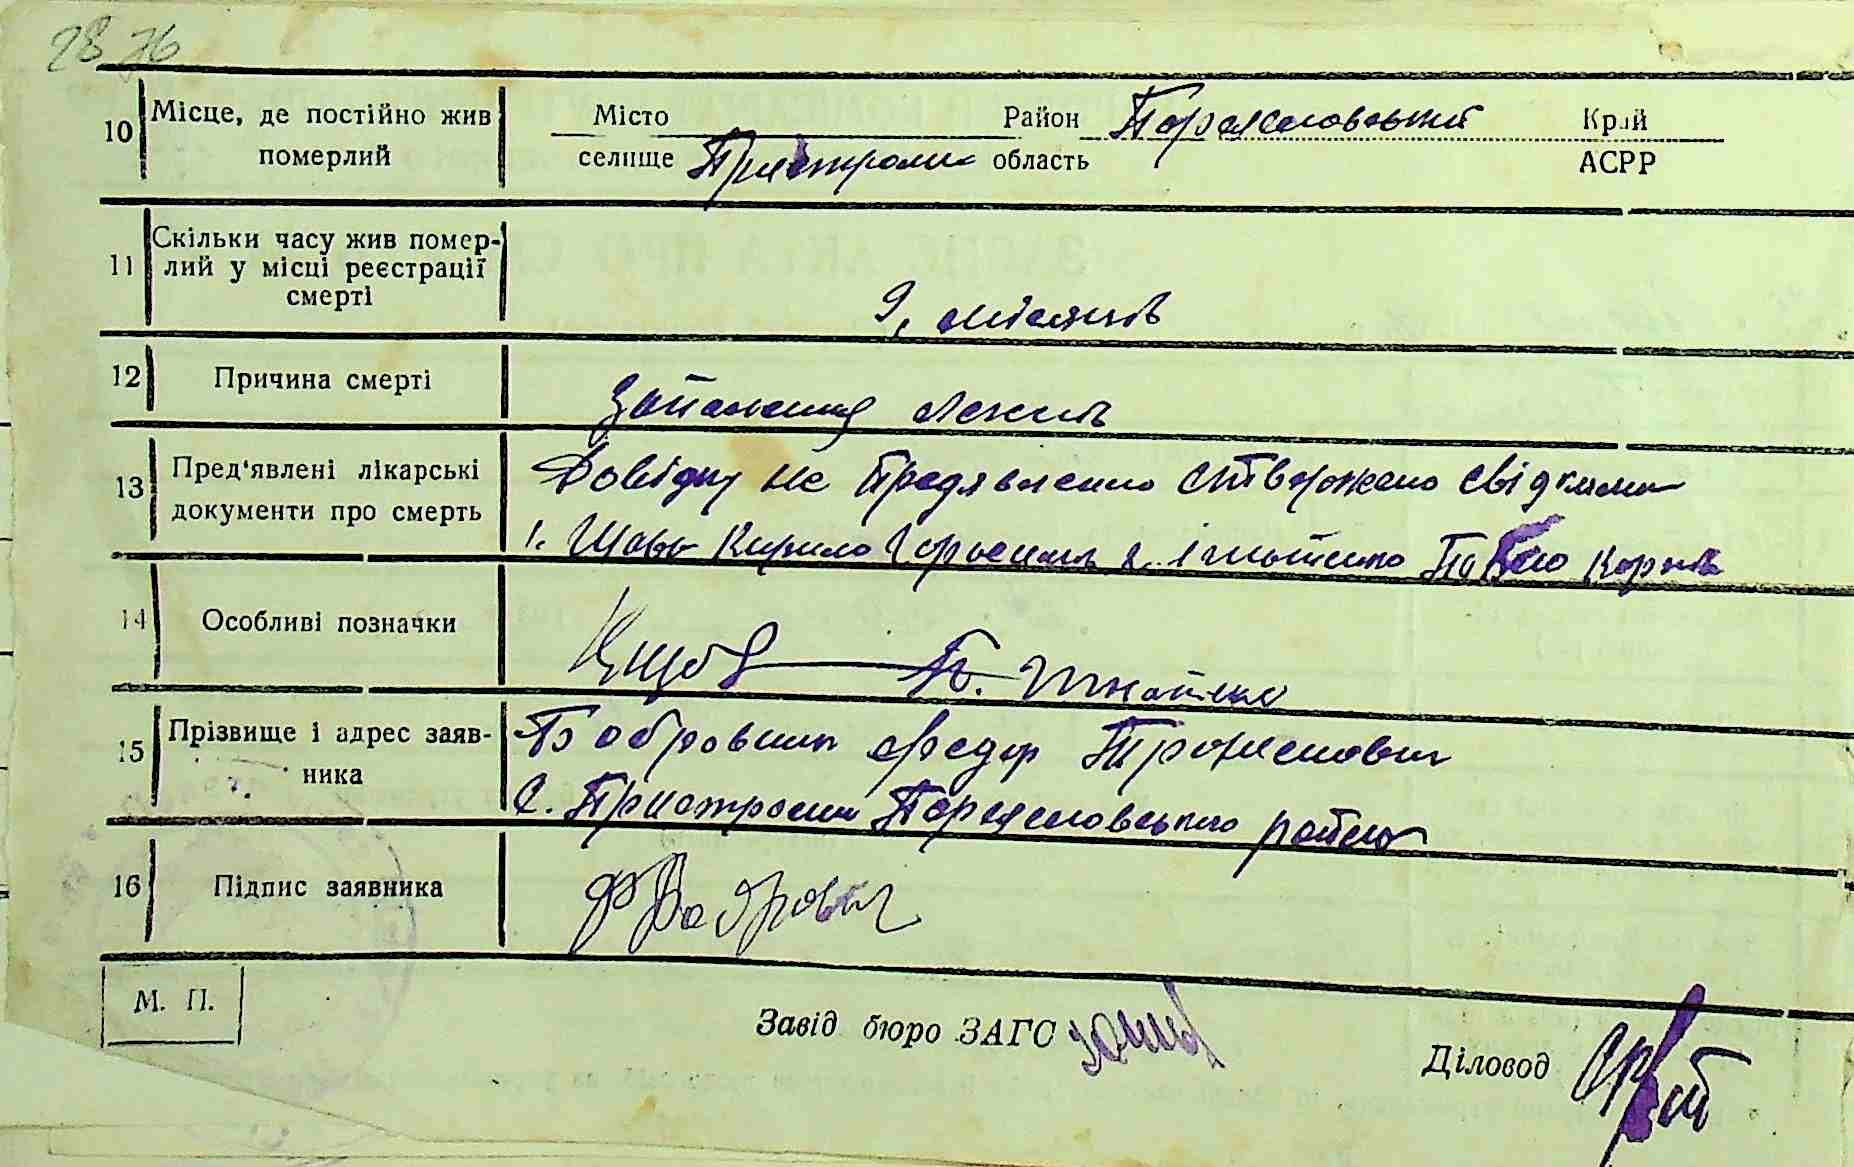 28 76
10 Місце, де постійно жив Місто Район Край
померлий селище Пристроми область АСРР
Скільки часу жив помер-
11 лий у місці реєстрації
смерті
9, місяців
12 Причина смерті
Запалення легків
13 Пред'явлені лікарські Довідку не предявлено стверджено свідками
документи про смерть 1. Кирило 2. Ігнатенко Павло
14 Особливі позначки П. Ігнатенко
15 Прізвище і адрес заяв- Бобровник Федор
ника с. Пристроми району
16 Підпис заявника
М. П.
Завід бюро ЗАГС
Діловод